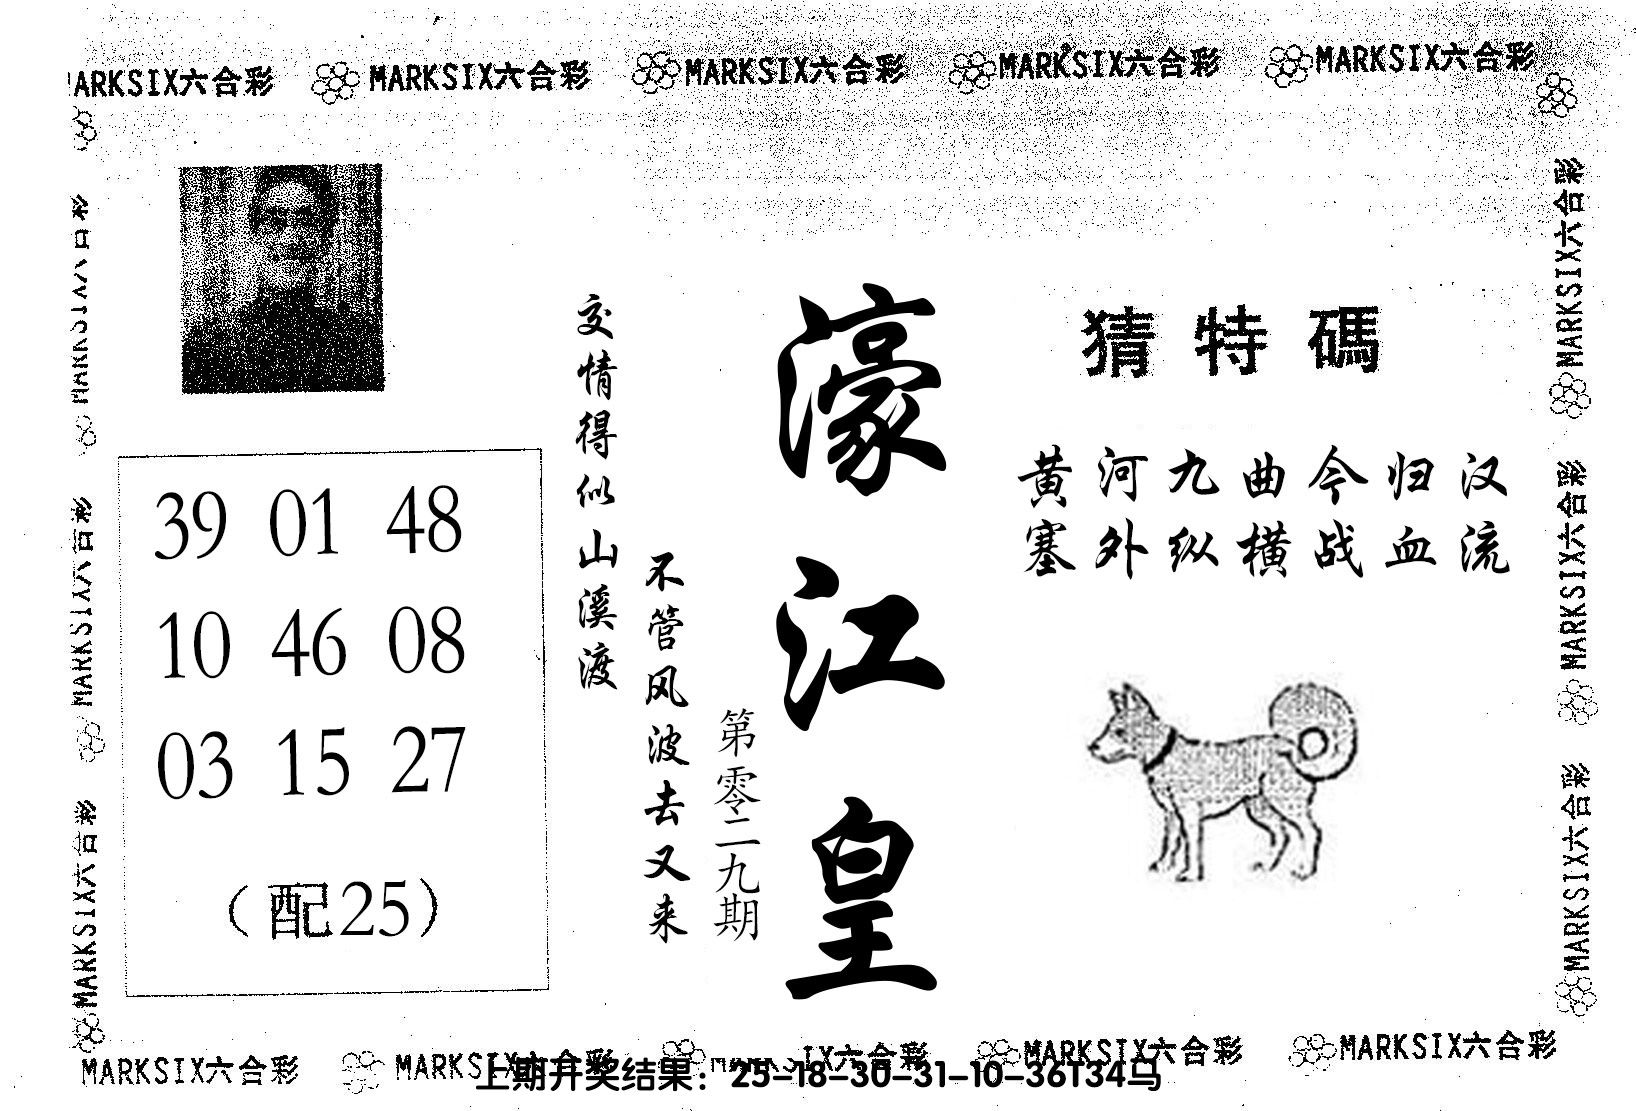 MARKSIX六合彩 MARKSIX六合彩 MARKSIX六合彩 MARKSIX六合彩
猜特碼
黄河九曲今归汉
塞外纵横战血流
濠江皇
第零二九期
交情得似山溪渡
不管风波去又来
39 01 48
10 46 08
03 15 27
（配25）
MARKSIX六合彩
MARKSIX六合彩
MARKSIX六合彩
MARKSIX六合彩
MARKSIX六合彩
MARKSIX六合彩 MARKSIX六合彩 MARKSIX六合彩 MARKSIX六合彩
上期开奖结果：25-18-30-31-10-36T34马